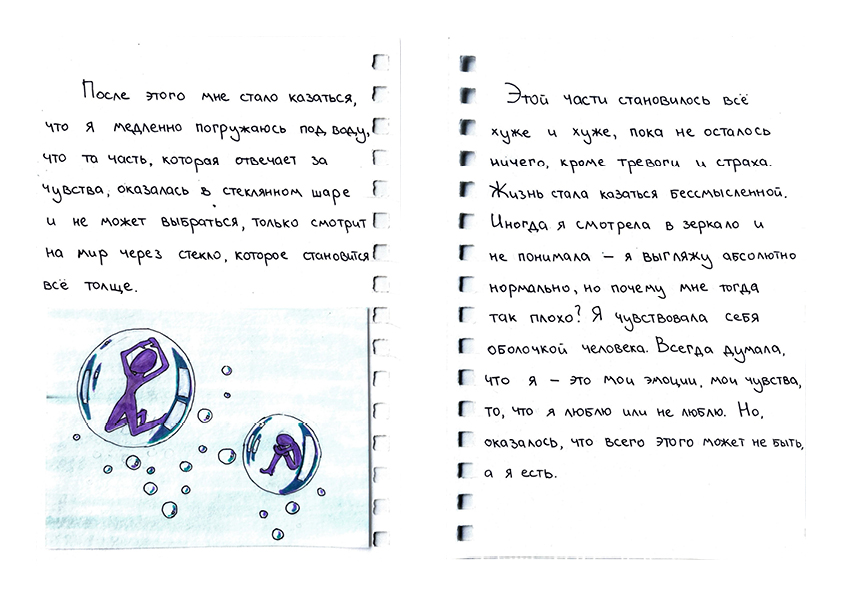 После этого мне стало казаться,
что я медленно погружаюсь под воду,
что та часть, которая отвечает за
чувства, оказалась в стеклянном шаре
и не может выбраться, только смотрит
на мир через стекло, которое становится
всё толще.
Этой части становилось всё
хуже и хуже, пока не осталось
ничего, кроме тревоги и страха.
Жизнь стала казаться бессмысленной.
Иногда я смотрела в зеркало и
не понимала – я выгляжу абсолютно
нормально, но почему мне тогда
так плохо? Я чувствовала себя
оболочкой человека. Всегда думала,
что я – это мои эмоции, мои чувства,
то, что я люблю или не люблю. Но,
оказалось, что всего этого может не быть,
а я есть.